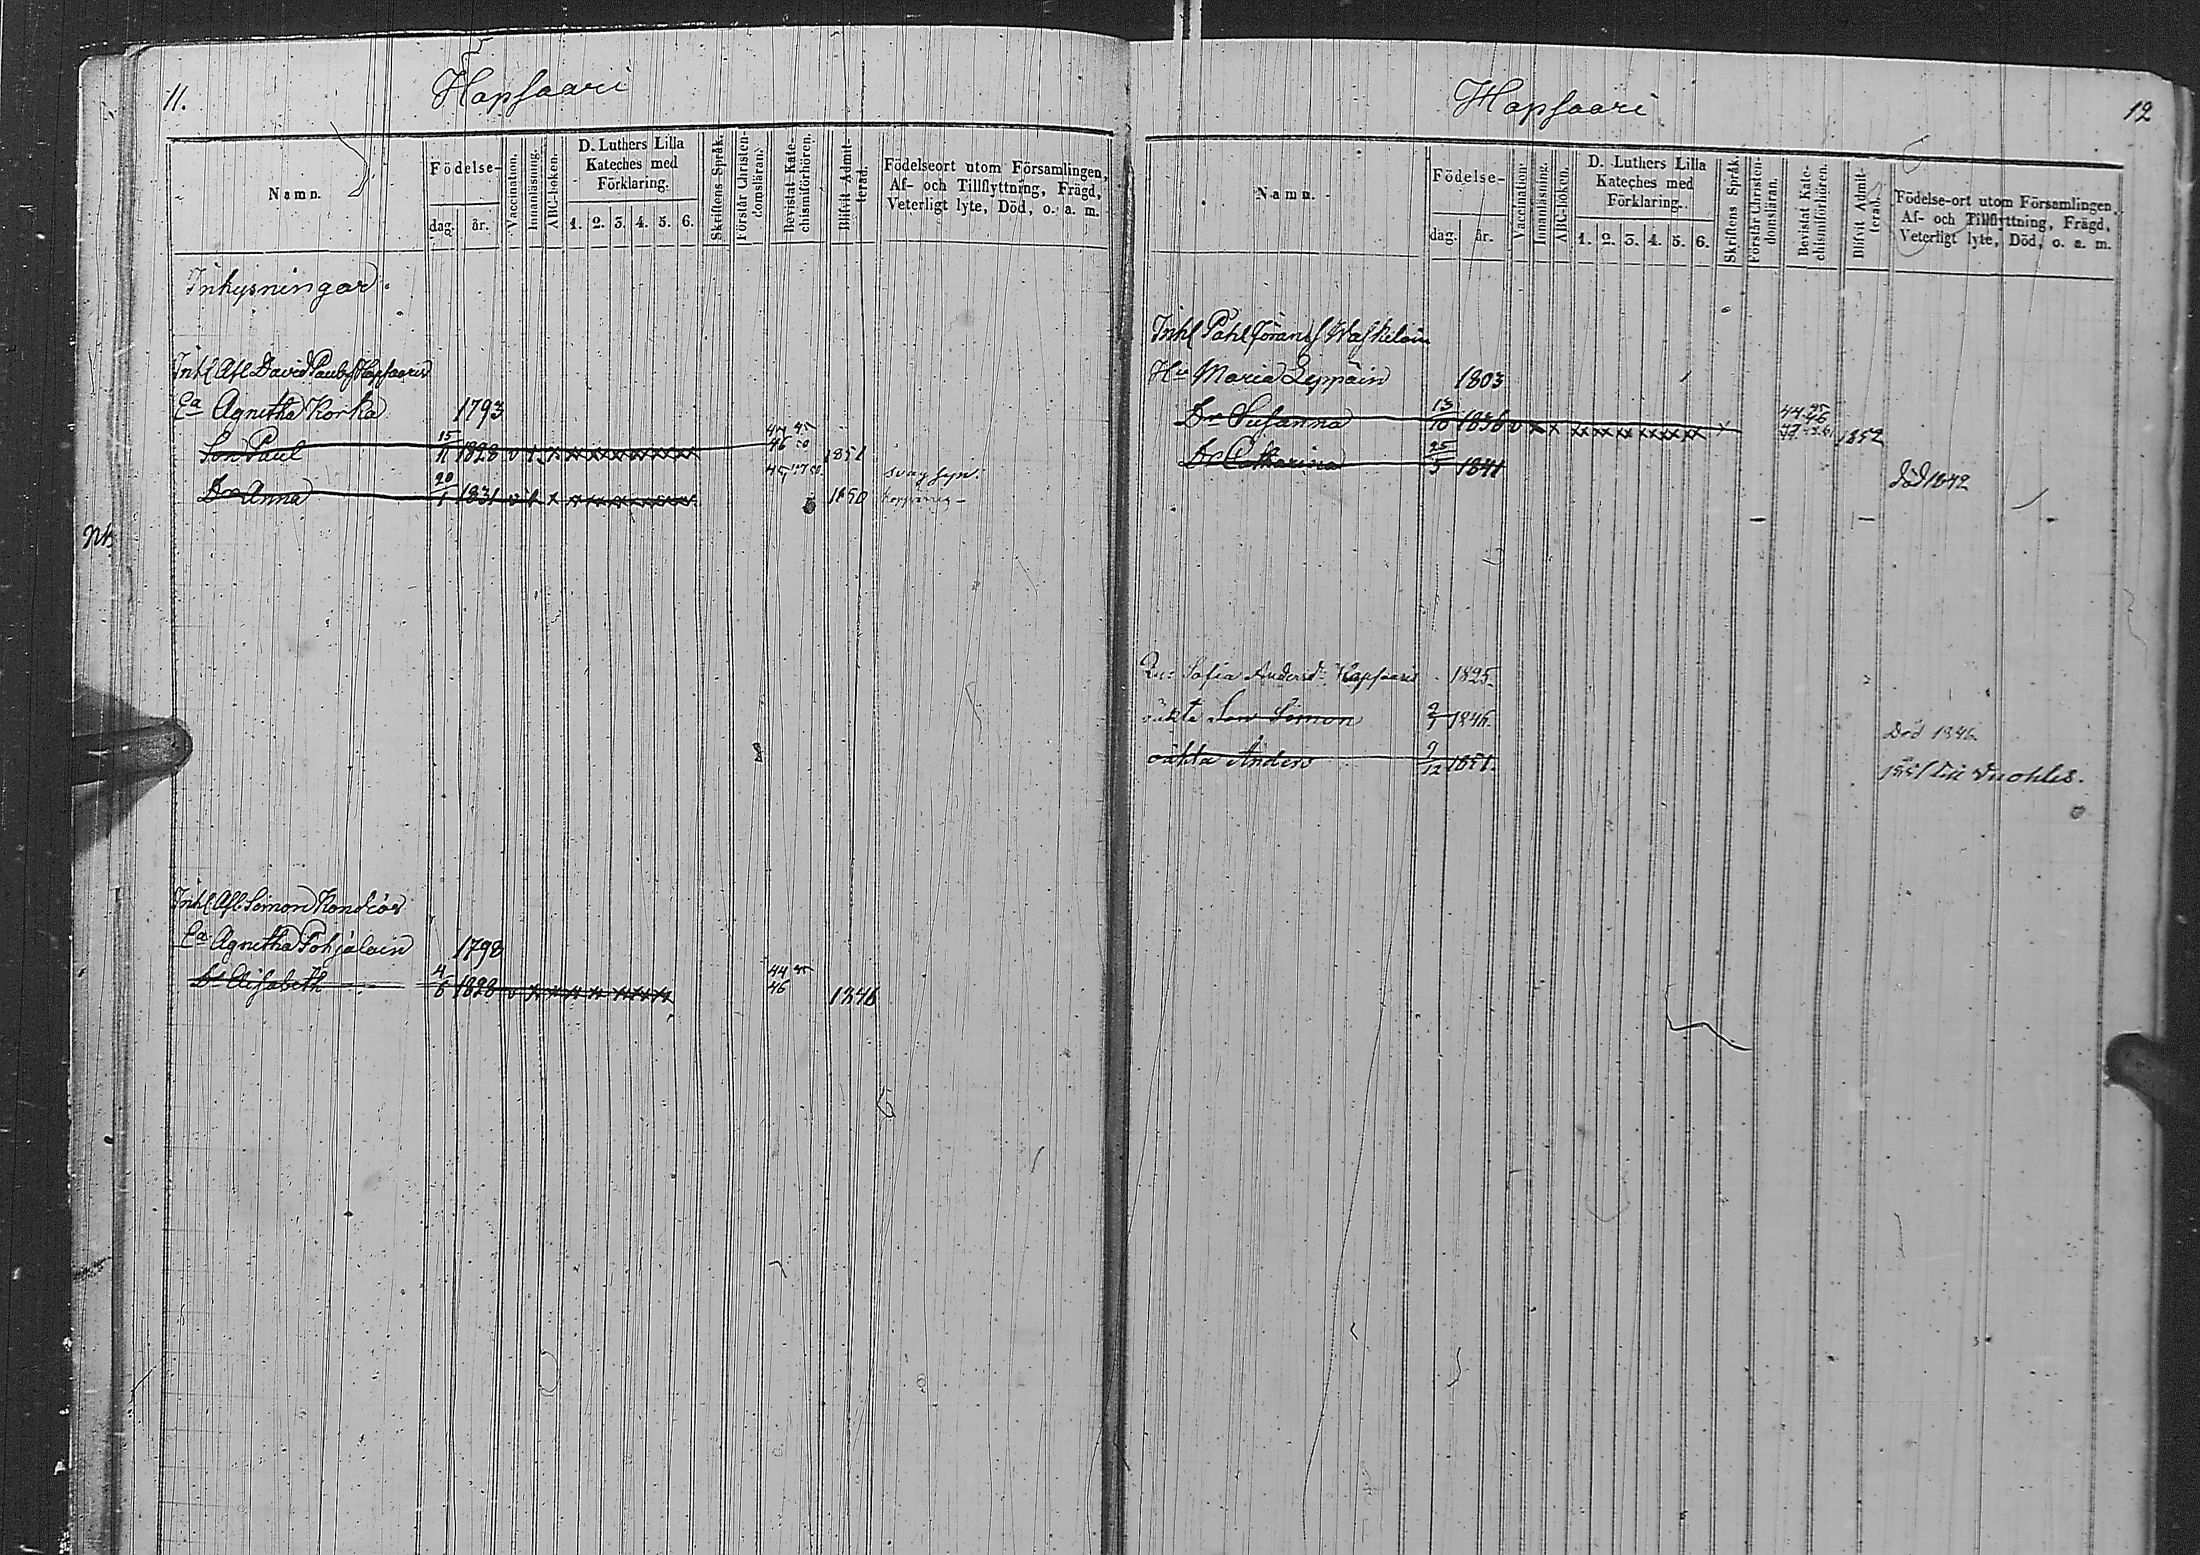 11.
Hapsaari
Namn.
Födelse-
dag.
år.
Vaccination.
Innanläsning.
ABC-boken.
D. Luthers Lilla
Kateches med
Förklaring.
1. 2. 3. 4. 5. 6.
Skriftens Språk.
Förstår Christen-
domsläran.
Bevistat Kate-
chismiförhören.
Blifvit Admit-
terad.
Födelseort utom Församlingen,
Af- och Tillflyttning, Frägd,
Veterligt lyte, Död, o. a. m.
Inhysningar.
Inhl Afl David Paulss Hapsaaris
Ea Agnetha Korka 1793
Son Paul 15/11 1828 v x x 45 46 1851 svag syn.
Dr Anna 20/1 1831 x 1850
Nb
Inhl Afl Simon Kondiās
Ea Agnetha Pohjalain 1798
Dr Elisabeth 4/6 1828 v x 44 45
46 1846
Hapsaari
12
Namn.
Födelse-
dag.
år.
Vaccination.
Innanläsning.
ABC-boken.
D. Luthers Lilla
Kateches med
Förklaring.
1. 2. 3. 4. 5. 6.
Skriftens Språk.
Förstår Christen-
domsläran.
Bevistat Kate-
chismiförhören.
Blifvit Admit-
terad.
Födelse-ort utom Församlingen,
Af- och Tillflyttning, Frägd,
Veterligt lyte, Död, o. a. m.
Inhl Påhl Göranss Waskelain
Hu Maria Leppäin 1803
Dr Susanna 13/10 1836 v x x 44 45 46 1852
Dr Catharina 25/5 1841 död 1842
Sofia Andersd. Hapsaari 1825.
oäkta Son Simon 2/1 1846. Död 1846
oäkta Anders 9/12 1851. 1851 till